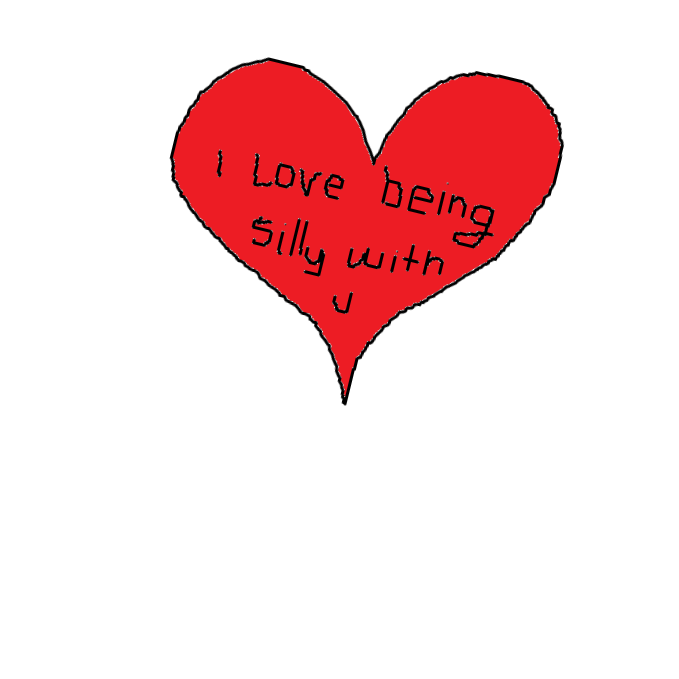 I Love being
Silly with
u